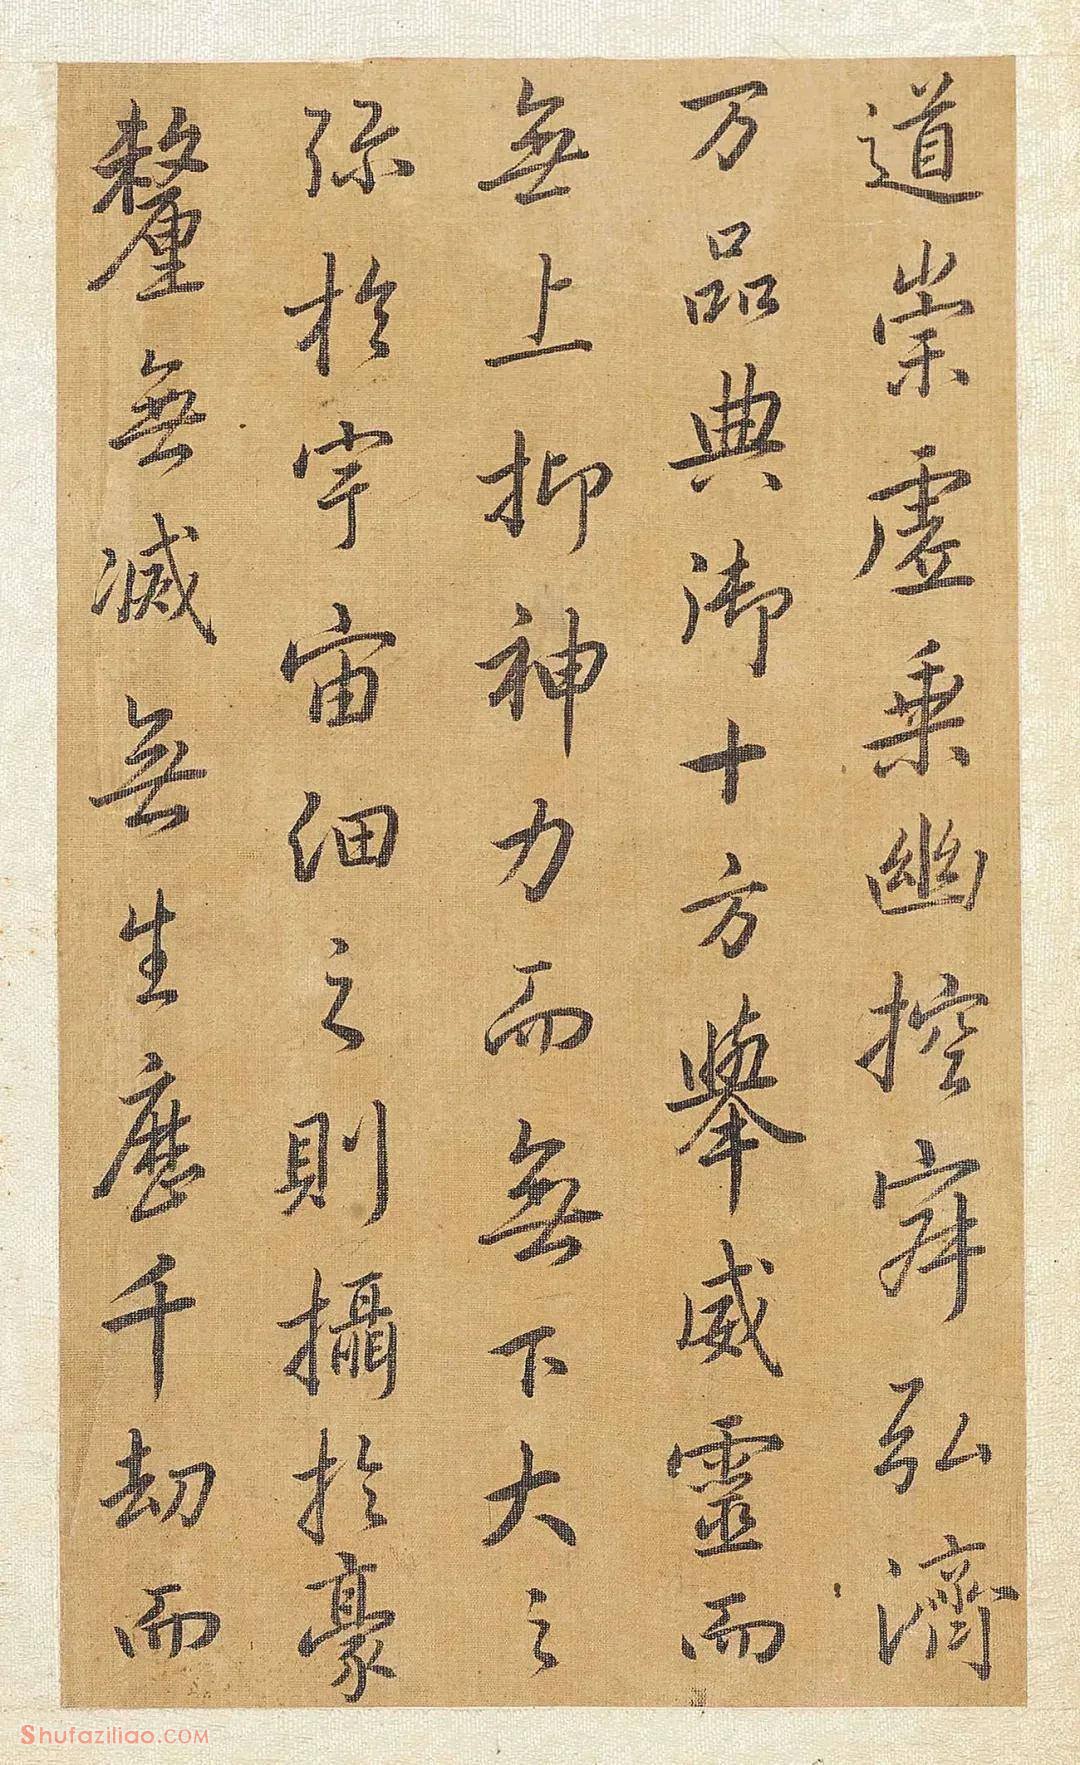 道崇虛乗幽控寂弘濟
万品典御十方舉威靈而
無上抑神力而無下大之
弥於宇宙細之則攝於豪
釐無滅無生歷千劫而
Shufaziliao.COM